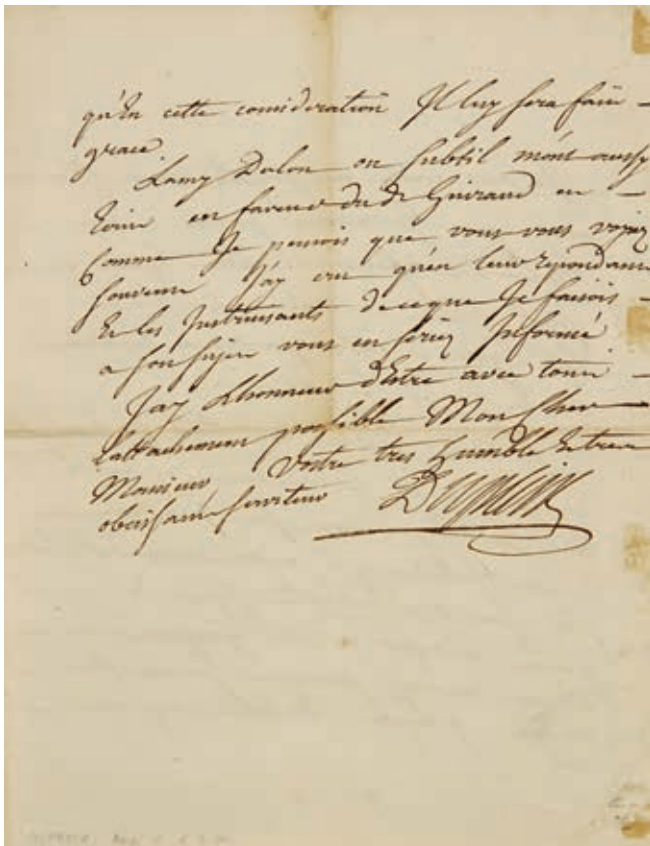 qu'En cette consideration Il luy sera faire
grace
Lamy Dalon ou Subtil m'ont aussy
Ecrire en faveur du Sr Guiraud en
Comme Je pensois que vous vous voyiez
souvent J'ay cru qu'en leur repondant
Et les Instruisants de ce que Je faisois
a son sujet vous en seriez Informé
J'ay Lhonneur d'Estre avec tout
Lattachement possible Mon Cher
Monsieur Vostre tres humble Et tres
obeissant serviteur Dupleix